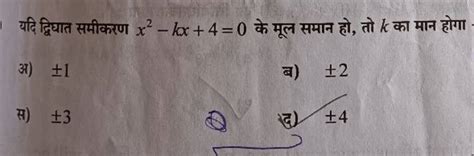 यदि द्विघात समीकरण x² – kx + 4 = 0 के मूल समान हो, तो k का मान होगा -
अ) ±1 ब) ±2
स) ±3 द) ±4